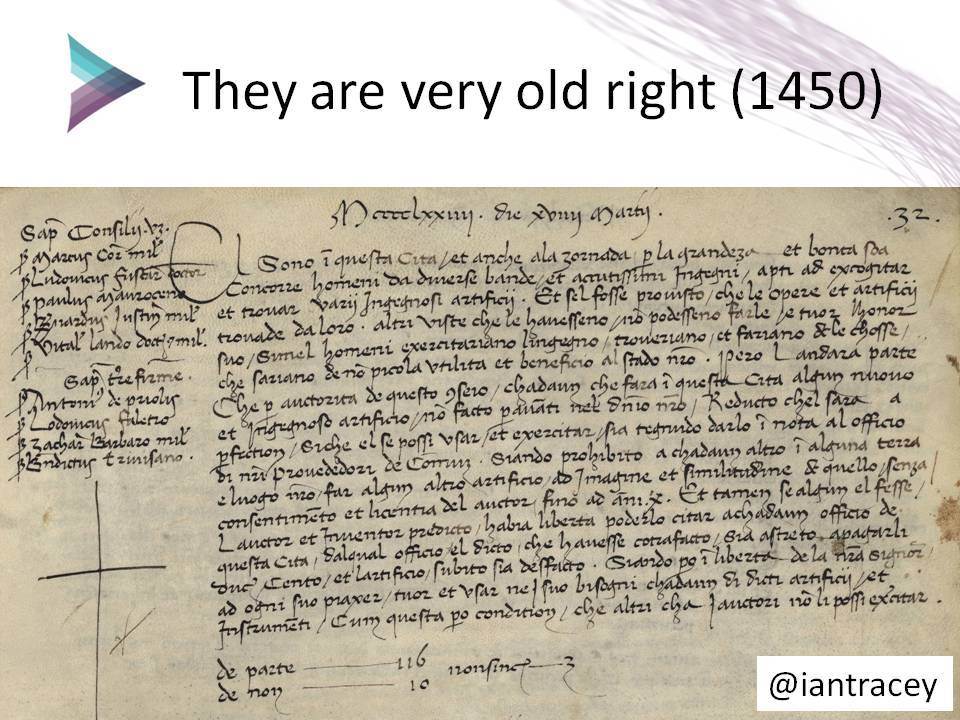 They are very old right (1450)
MccccLxxiiij . die xviiij Martij .
.32.
Sap Consilij
Marcus Cor mil
Ludovicus
paulus Mauroceno
mil
Vital lando
Sap
Antoni de priolis
Lodovicus
Zachar Barbaro mil
Trivisano .
El Sono ī questa Cita / et anche ala zornada p la grandeza et bonta soa
Concorre homeni da diverse bande / et acutissimi Ingegni , apti ad excogitar
et trovar varij Ingegnosi artificij . Et sel fosse provisto / che le opere et artificij
trovade da loro . altri viste che le havesseno / nō podesseno farle / e tuor l honor
suo / Simel homeni exercitariano lingegno / troveriano / et fariano de le chosse /
che sariano de nō picola utilita et beneficio al stado nro . Pero L andara parte
Che p auctorita de questo / chadaun che fara ī questa Cita algun nuovo
et Ingegnoso artificio / nō facto nel nro / Reducto chel sara a
pfection / Siche el se possi usar / et exercitar / sia tegnudo darlo ī nota al officio
di nri Provededori de Comun . Siando prohibito a chadaun altro ī alguna terra
e luogo nro / far algun altro artificio / ad Imagine et similitudine de quello / senza
consentimēto et licentia del auctor / fino ad āni .x. Et tamen se algun el fesse /
L auctor et Inventor predicto / habia liberta poderlo citar a chadaun officio de
questa Cita / dalqual officio el dicto / che havesse cōtrafacto / sia astreto apagarli
duc Cento / et lartificio / subito sia desfacto . Siando po ī liberta de la nra Signor
ad ogni suo piaxer / tuor et usar nei suo bisogni chadaun di dicti artificij / et
Instrumēti / Cum questa po condition / che altri cha l auctori nō li possi exercitar .
de parte 116 nonsinc 3
de non 10
@iantracey